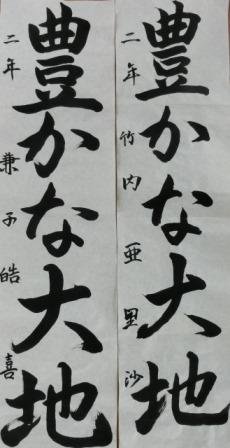 豊かな大地
二年 竹内亜里沙
豊かな大地
二年 兼子皓喜